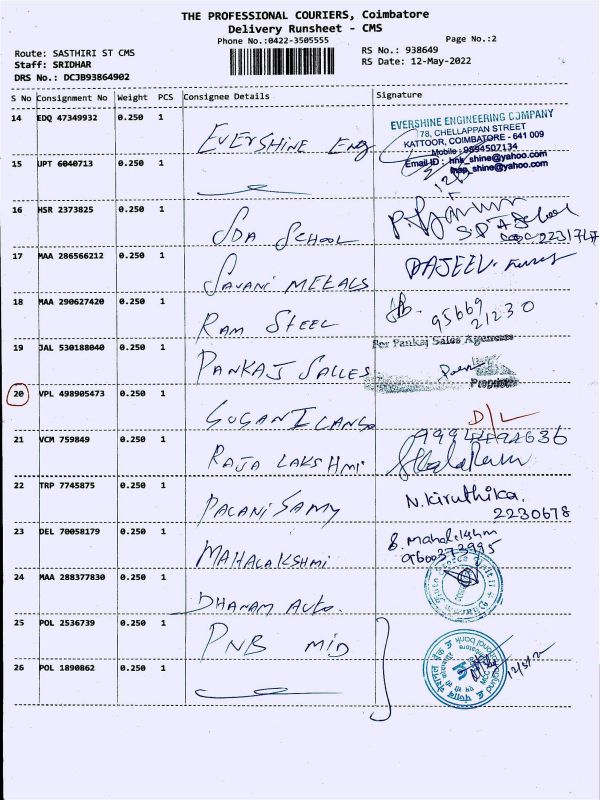 THE PROFESSIONAL COURIERS, Coimbatore
Delivery Runsheet - CMS
Phone No.:0422-3505555
Page No.:2
Route: SASTHIRI ST CMS
RS No.: 938649
Staff: SRIDHAR
RS Date: 12-May-2022
DRS No.: DCJB93864902
S No Consignment No Weight PCS Consignee Details Signature
14 EDQ 47349932 0.250 1 EVERSHINE Eng
EVERSHINE ENGINEERING COMPANY
78, CHELLAPPAN STREET
KATTOOR, COIMBATORE - 641 009
Mobile : 9894507134
Email ID : hnk_shine@yahoo.com
shine@yahoo.com
15 UPT 6040713 0.250 1
16 HSR 2373825 0.250 1 SDA SCHOOL
17 MAA 286566212 0.250 1 SAVANI METALS
18 MAA 290627420 0.250 1 RAM STEEL 95669
21230
19 JAL 530188040 0.250 1 PANKAJ SALLES
For Pankaj Sales Agencies
20 VPL 498905473 0.250 1 D/L
21 VCM 759849 0.250 1 RAJA LAKSHMI
22 TRP 7745875 0.250 1 PALANI SAMY N. Kiruthika.
2230678
23 DEL 70058179 0.250 1 MAHALAKSHMI
24 MAA 288377830 0.250 1 DHANAM AUTO.
25 POL 2536739 0.250 1 PNB MID
26 POL 1890862 0.250 1 12/5/22